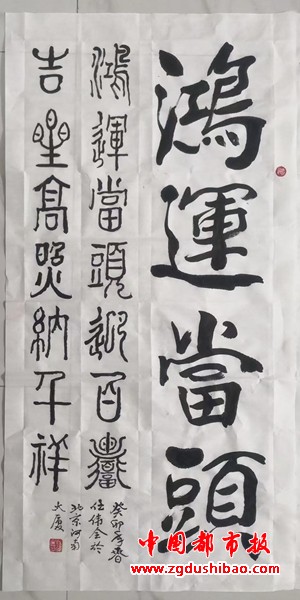 鴻運當頭
鴻運當頭迎百
吉星高照納千祥
癸卯年春
任伟全於
北京河南
大厦
中国都市报
www.zgdushibao.com